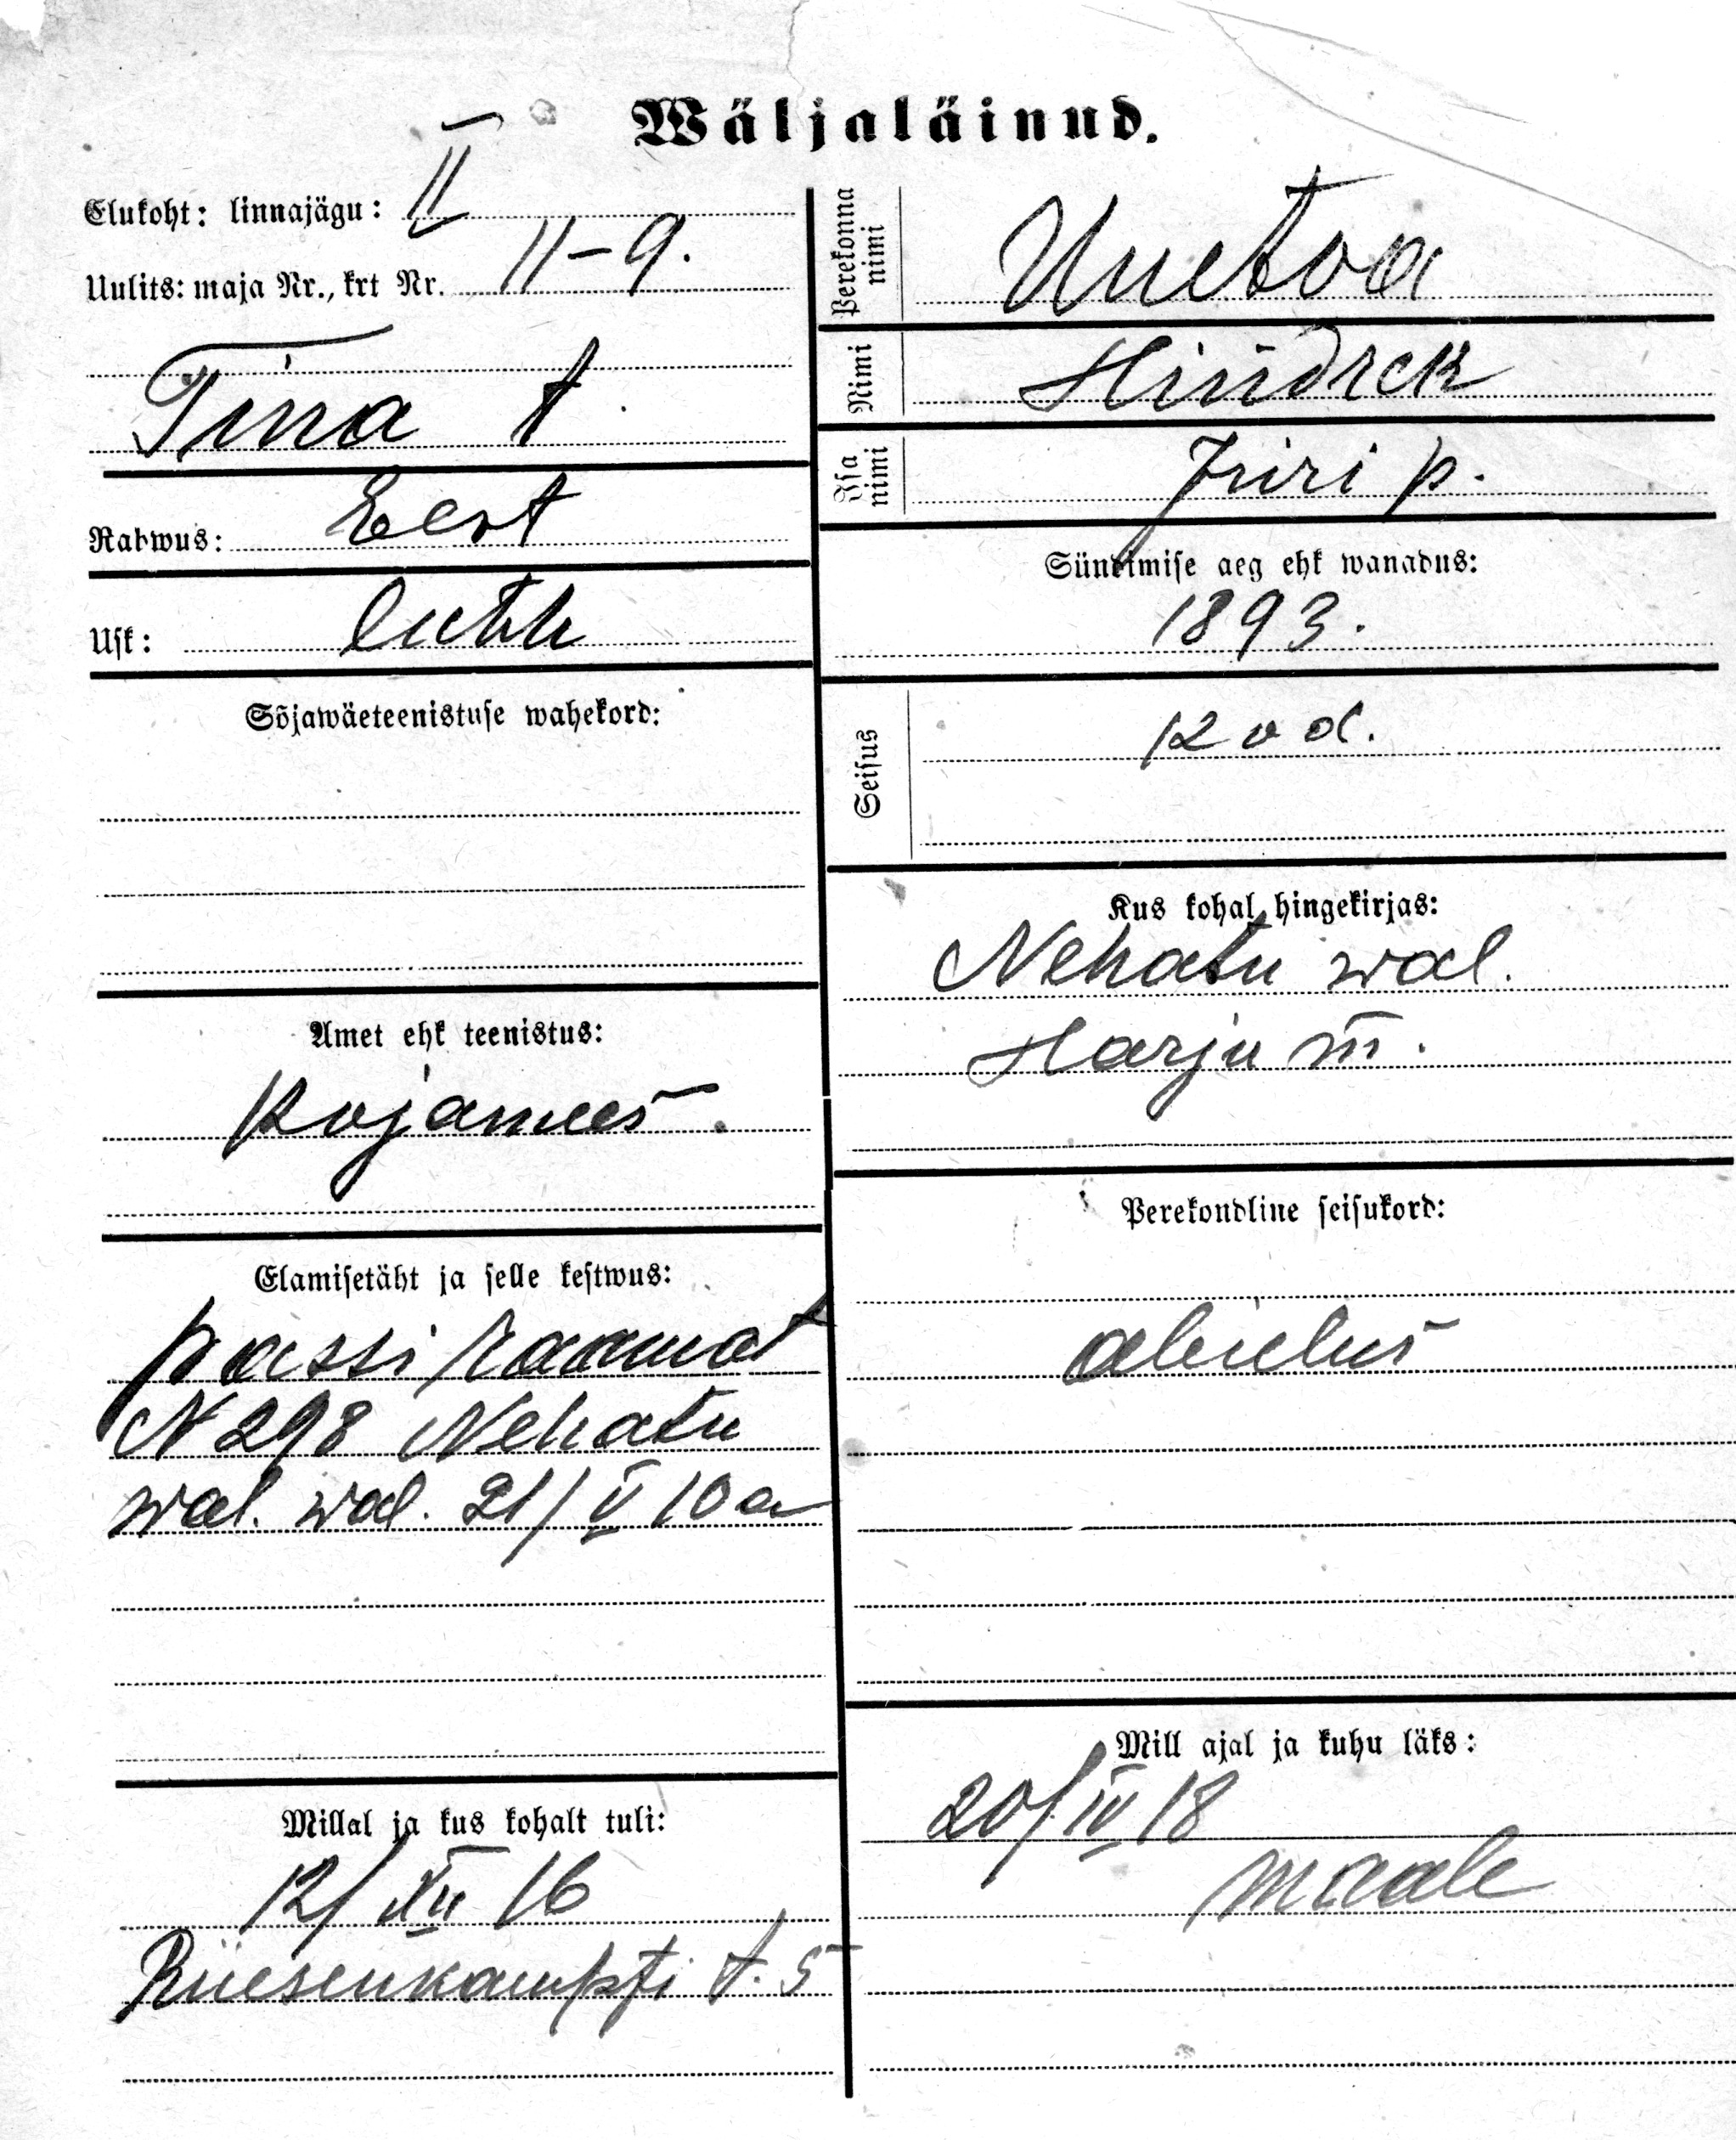 Wäljaläinud.
Elukoht: linnajägu: II
Uulits: maja Nr., krt Nr. 11–9.
Tina t.
Rahwus: Eest
Usk: luth
Sõjawäeteenistuse wahekord:
Amet ehk teenistus:
Kojamees.
Elamisetäht ja selle kestwus:
passi raamat
N 298 Nehatu
wal. wal. 21/V 10 a
Millal ja kus kohalt tuli:
12/XII 16
Riiesenkampfi t. 5
Perekonna nimi Uuetoa
Nimi Hindrek
Isa nimi Jüri p.
Sündimise aeg ehk wanadus:
1893.
Seisus kod.
Kus kohal hingekirjas:
Nehatu wal.
Harju m.
Perekondline seisukord:
abielus
Mill ajal ja kuhu läks:
20/IV 18
maale